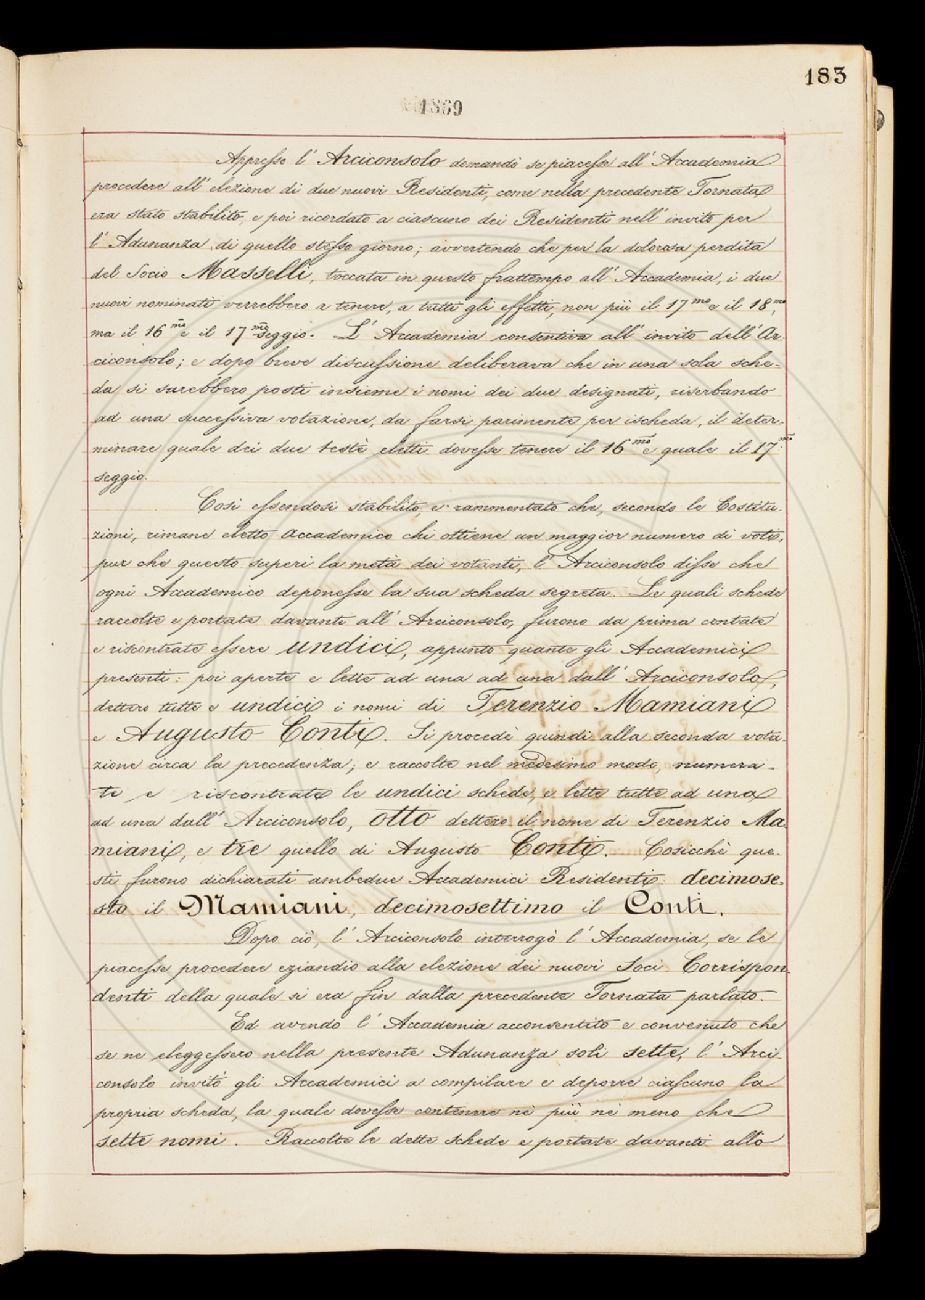 183
1869
Appresso l' Arciconsolo domandò se piacesse all' Accademia
procedere all' elezione di due nuovi Residenti, come nella precedente Tornata
era stato stabilito, e poi ricordato a ciascuno dei Residenti nell' invito per
l' Adunanza di quello stesso giorno; avvertendo che per la dolorosa perdita
del Socio Masselli, toccata in questo frattempo all' Accademia, i due
nuovi nominati verrebbero a tenere, a tutti gli effetti, non più il 17mo e il 18mo,
ma il 16mo e il 17mo seggio. L' Accademia consentiva all' invito dell' Ar-
ciconsolo; e dopo breve discussione deliberava che in una sola sche-
da si sarebbero posti insieme i nomi dei due designati, riserbando
ad una successiva votazione, da farsi parimente per ischeda, il deter-
minare quale dei due testè eletti dovesse tenere il 16mo e quale il 17mo
seggio.
Così essendosi stabilito, e rammentato che, secondo le Costitu-
zioni, rimane eletto accademico chi ottiene un maggior numero di voti,
pur che questo superi la metà dei votanti, l' Arciconsolo disse che
ogni Accademico deponesse la sua scheda segreta. Le quali schede
raccolte e portate davanti all' Arciconsolo, furono da prima contate
e riscontrate essere undici, appunto quante gli Accademici
presenti: poi aperte e lette ad una ad una dall' Arciconsolo,
dettero tutte e undici i nomi di Terenzio Mamiani
e Augusto Conti. Si procedè quindi alla seconda vota-
zione circa la precedenza; e raccolte nel medesimo modo, numera-
te e riscontrate le undici schede, e lette tutte ad una
ad una dall' Arciconsolo, otto dettero il nome di Terenzio Ma-
miani, e tre quello di Augusto Conti. Cosicchè que-
sti furono dichiarati ambedue Accademici Residenti: decimose-
sto il Mamiani, decimosettimo il Conti.
Dopo ciò, l' Arciconsolo interrogò l' Accademia, se le
piacesse procedere eziandio alla elezione dei nuovi Soci Corrispon-
denti della quale si era fin dalla precedente Tornata parlato.
Ed avendo l' Accademia acconsentito e convenuto che
se ne eleggessero nella presente Adunanza soli sette, l' Arci-
consolo invitò gli Accademici a compilare e deporre ciascuno la
propria scheda, la quale dovesse contenere nè più nè meno che
sette nomi. Raccolte le dette schede e portate davanti allo